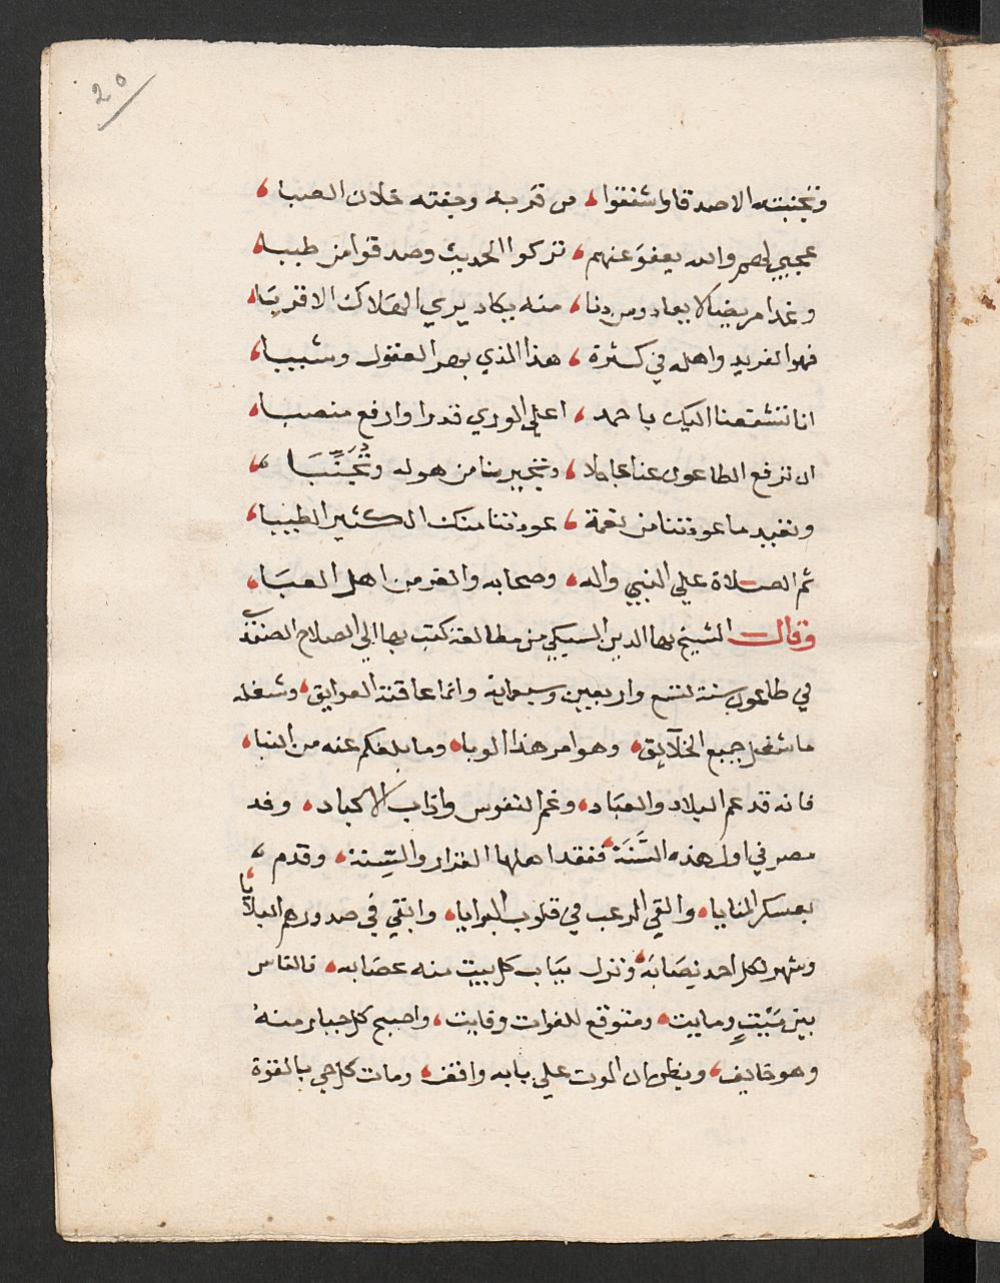 20
وتجنبته الاصدقا واشفقوا، من قربه وجفته خلان الصبا،
عجبي لهم والله يعفو عنهم، تركوا الحديث وصدقوا من طببا،
وغدا مريضا لا يعاد ومن دنا، منه يكاد يري الهلاك الاقربا،
فهو الفريد واهله في كثرة، هذا الذي بهر العقول وشيبا،
انا تشفعنا اليك باحمد، اعلي الوري قدرا وارفع منصبا،
ان ترفع الطاعون عنا عاجلا، وتجيرنا من هوله وتُجَنِّبَا،
وتعيد ما عودتنا من نعمة، عودتنا منك الكثير الطيبا،
ثم الصلاة علي النبي واله، وصحابه والغر من اهل العبَا،
وقال الشيخ بها الدين السبكي من مطالعة كتب بها الي الصلاح الصفدي
في طاعون سنة تسع واربعين وسبعماية وانما عاقته العوايق، وشغله
ما شغل جميع الخلآيق، وهو امر هذا الوبا، وما بلغكم عنه من النبا،
فانه قد عم البلاد والعبَاد، وغم النفوس واذاب الاكباد، وفد
مصر في اول هذه السَّنَة، ففقد اهلها القرار والسِنة، وقدم
بعسكر المنايا، والقي الرعب في قلوب البرايا، وابقي في صدورهم البلايا،
وشهر لكل احد نصَابَه، ونزل ببَاب كل بيت منه عصَابه، فالناس
بين مَيّتٍ ومايت، ومتوقع للفوات وفايت، واصبح كل جبار منهُ
وهو خايف، ويظن ان الموت علي بابه واقف، ومات كل حي بالقوة